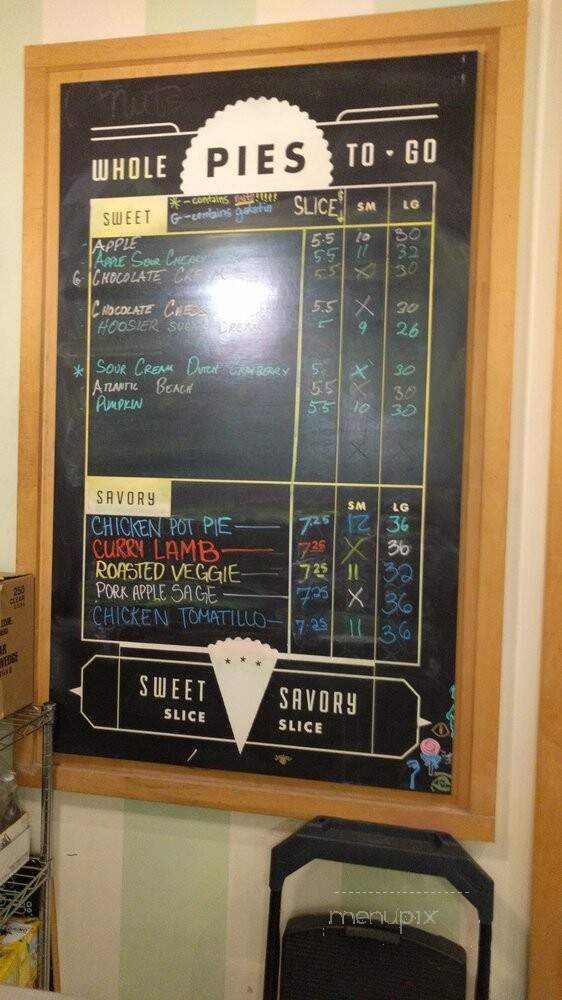 nuts
WHOLE PIES TO • GO
SWEET * - contains nuts!!!!! SLICE $ SM LG
G - contains gelatin
APPLE 5.5 10 30
APPLE SOUR CHERRY 5.5 11 32
G CHOCOLATE CREAM 5.5 X 30
CHOCOLATE CHESS 5.5 X 30
HOOSIER SUGAR CREAM 5 9 26
* SOUR CREAM DUTCH CRANBERRY 5. X 30
ATLANTIC BEACH 5.5 X 30
PUMPKIN 5.5 10 30
X X
SAVORY SM LG
CHICKEN POT PIE 7.25 12 36
CURRY LAMB 7.25 X 36
ROASTED VEGGIE 7.25 11 32
PORK APPLE SAGE 7.25 X 36
CHICKEN TOMATILLO 7.25 11 36
SWEET SAVORY
SLICE SLICE
250
CLEAR
menupix